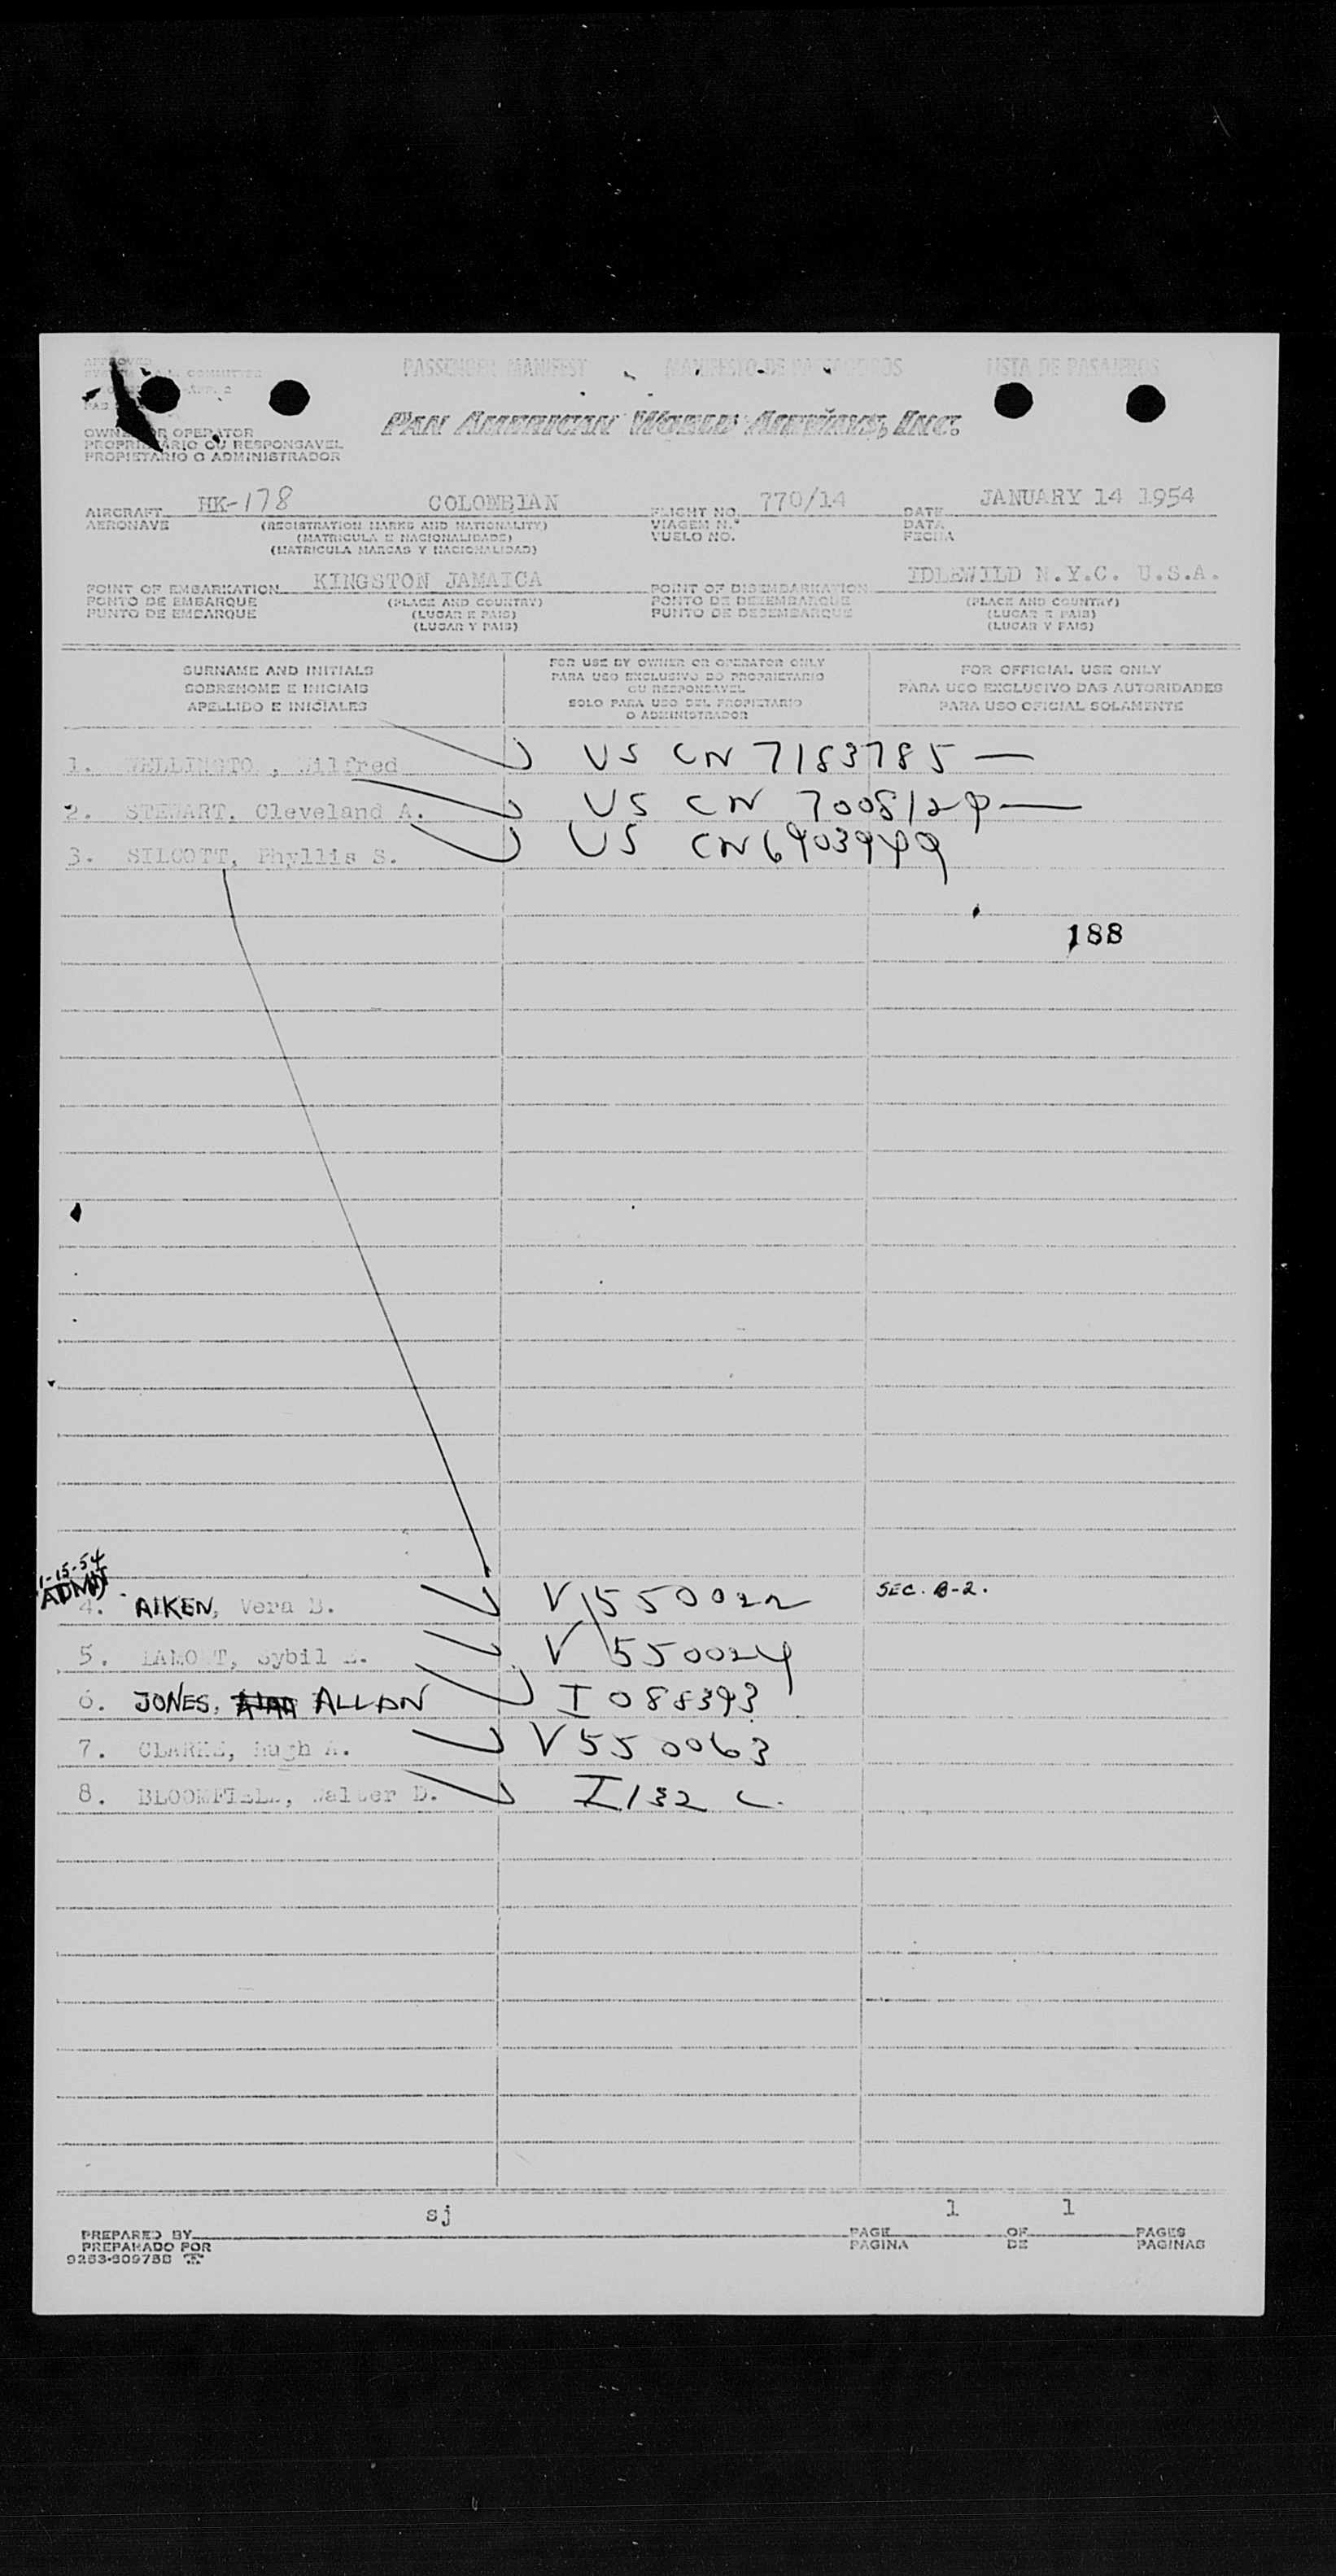 APPROVED
PASSENGER MANIFEST MANIFESTO DE PASSAGEIROS LISTA DE PASAJEROS
PAN AMERICAN WORLD AIRWAYS, INC.
OWNER OR OPERATOR
PROPRIETARIO OU RESPONSAVEL
PROPIETARIO O ADMINISTRADOR
AIRCRAFT HK-178 COLOMBIAN FLIGHT NO. 770/14 DATE JANUARY 14 1954
AERONAVE (REGISTRATION MARKS AND NATIONALITY) VIAGEM N.º DATA
(MATRICULA E NACIONALIDADE) VUELO NO. FECHA
(MATRICULA MARCAS Y NACIONALIDAD)
POINT OF EMBARKATION KINGSTON JAMAICA POINT OF DISEMBARKATION IDLEWILD N.Y.C. U.S.A.
PONTO DE EMBARQUE (PLACE AND COUNTRY) PONTO DE DESEMBARQUE (PLACE AND COUNTRY)
PUNTO DE EMBARQUE (LUGAR E PAIS) PUNTO DE DESEMBARQUE (LUGAR E PAIS)
(LUGAR Y PAIS) (LUGAR Y PAIS)
SURNAME AND INITIALS FOR USE BY OWNER OR OPERATOR ONLY FOR OFFICIAL USE ONLY
SOBRENOME E INICIAIS PARA USO EXCLUSIVO DO PROPRIETARIO OU RESPONSAVEL PARA USO EXCLUSIVO DAS AUTORIDADES
APELLIDO E INICIALES SOLO PARA USO DEL PROPIETARIO O ADMINISTRADOR PARA USO OFICIAL SOLAMENTE
1. WELLINGTO , Wilfred US CN 7183785 —
2. STEWART, Cleveland A. US CN 700812 —
3. SILCOTT, Phyllis S. US CN
188
1-15-54
ADMIT
4. AIKEN, Vera B. V 550022 SEC. B-2.
5. LAMO T, Sybil V 550024
6. JONES, ALLAN I 088393
7. CLARKE, Hugh A. V 550063
8. BLOOMFIELD, Walter D. I 132 C.
sj 1 1
PREPARED BY PAGE OF PAGES
PREPARADO POR PAGINA DE PAGINAS
9253-509758